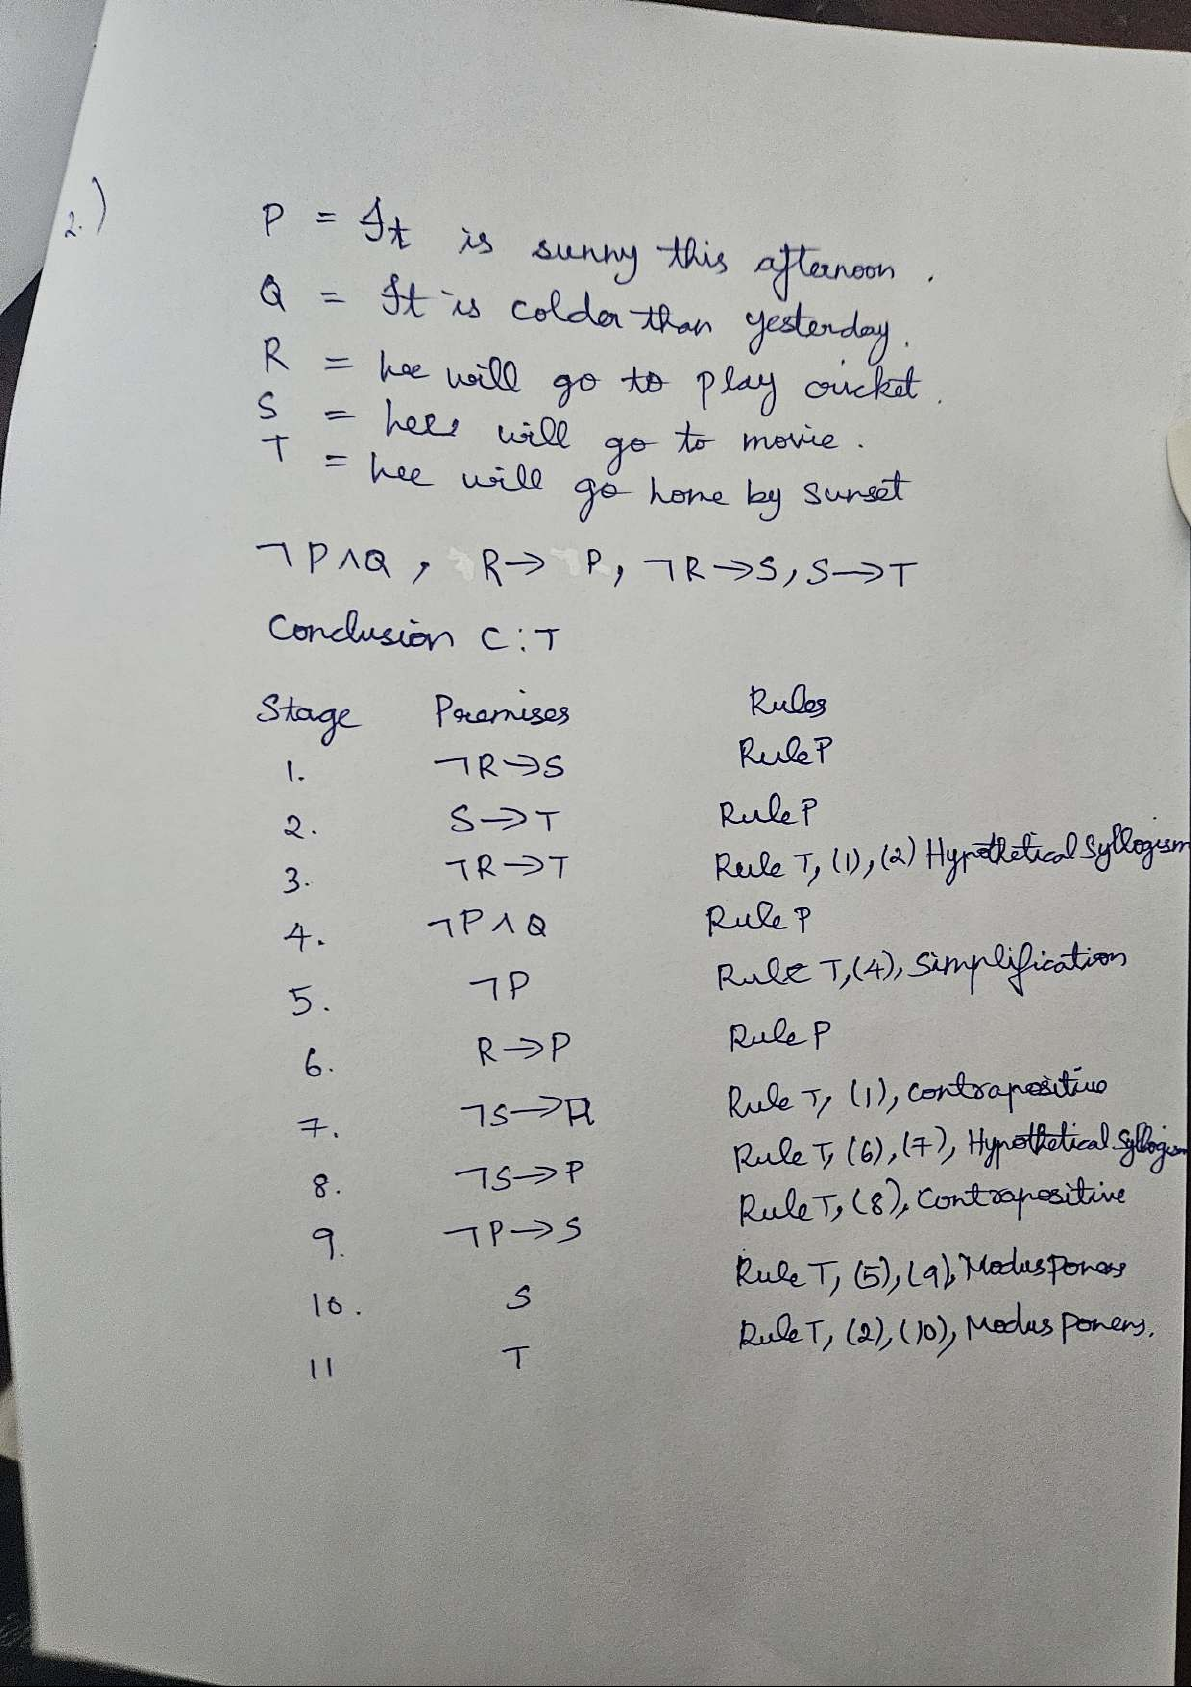 2.) P = It is sunny this afternoon.
Q = It is colder than yesterday.
R = hee will go to play cricket.
S = hees will go to movie.
T = hee will go home by sunset
¬P∧Q, R→P, ¬R→S, S→T
Conclusion C:T
Stage Premises Rules
1. ¬R→S Rule P
2. S→T Rule P
3. ¬R→T Rule T, (1),(2) Hypothetical Syllogism
4. ¬P∧Q Rule P
5. ¬P Rule T,(4), Simplification
6. R→P Rule P
7. ¬S→R Rule T, (1), Contrapositive
8. ¬S→P Rule T, (6),(7), Hypothetical Syllogism
9. ¬P→S Rule T, (8), Contrapositive
10. S Rule T, (5),(9), Modus Ponens
11 T Rule T, (2),(10), Modus Ponens.